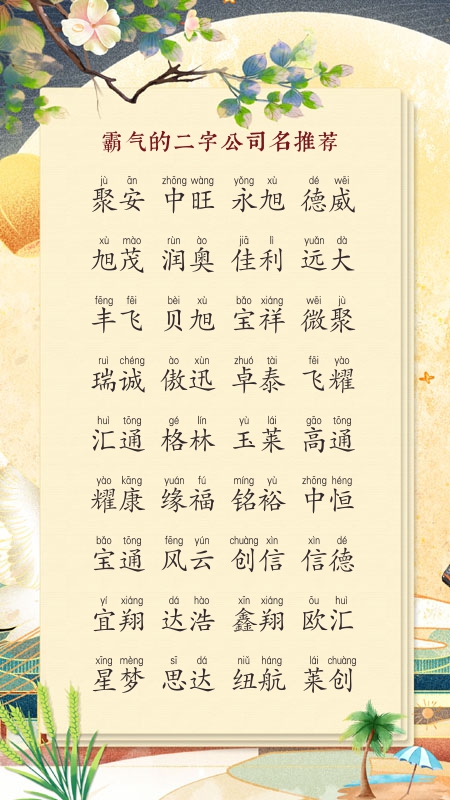 霸气的二字公司名推荐
jù ān zhōng wàng yǒng xù dé wēi
聚安 中旺 永旭 德威
xù mào rùn ào jiā lì yuǎn dà
旭茂 润奥 佳利 远大
fēng fēi bèi xù bǎo xiáng wēi jù
丰飞 贝旭 宝祥 微聚
ruì chéng ào xùn zhuó tài fēi yào
瑞诚 傲迅 卓泰 飞耀
huì tōng gé lín yù lái gāo tōng
汇通 格林 玉莱 高通
yào kāng yuán fú míng yù zhōng héng
耀康 缘福 铭裕 中恒
bǎo tōng fēng yún chuàng xìn xìn dé
宝通 风云 创信 信德
yí xiáng dá hào xīn xiáng ōu huì
宜翔 达浩 鑫翔 欧汇
xīng mèng sī dá niǔ háng lái chuàng
星梦 思达 纽航 莱创